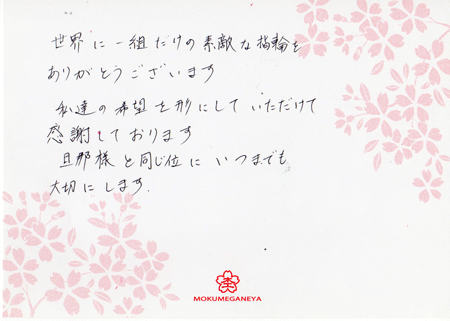 世界に一組だけの素敵な指輪を
ありがとうございます
私達の希望を形にしていただけて
感謝しております
旦那様と同じ位にいつまでも
大切にします.
MOKUMEGANEYA